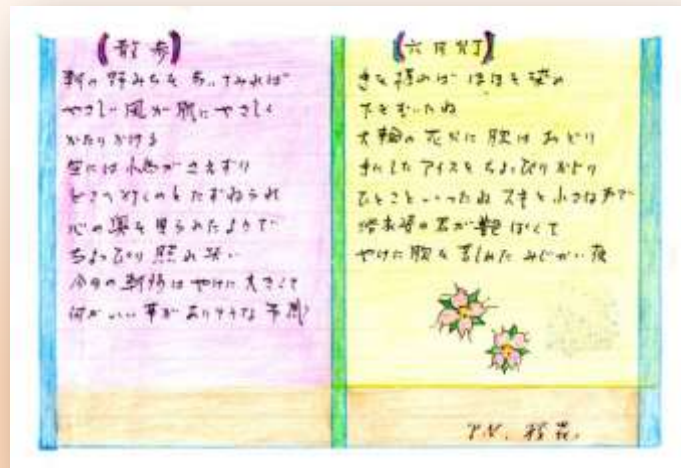 【散歩】
朝の野みちを歩いてみれば
やさしい風が肌にやさしく
かたりかける
空には小鳥がさえずり
どこへ行くのとたずねられ
心の奥を見られたようで
ちょっぴり照れ笑い
今日の朝陽はやけに大きくて
何かいい事がありそうな予感
【六月灯】
ほほを染め
下をむいたね
大輪の花火に胸はおどり
手にしたアイスをちょっぴりかじり
ひとこといったね スキと小さな声で
浴衣姿の君が艶ぽくて
やけに胸を苦しめた みじかい夜
P.N.